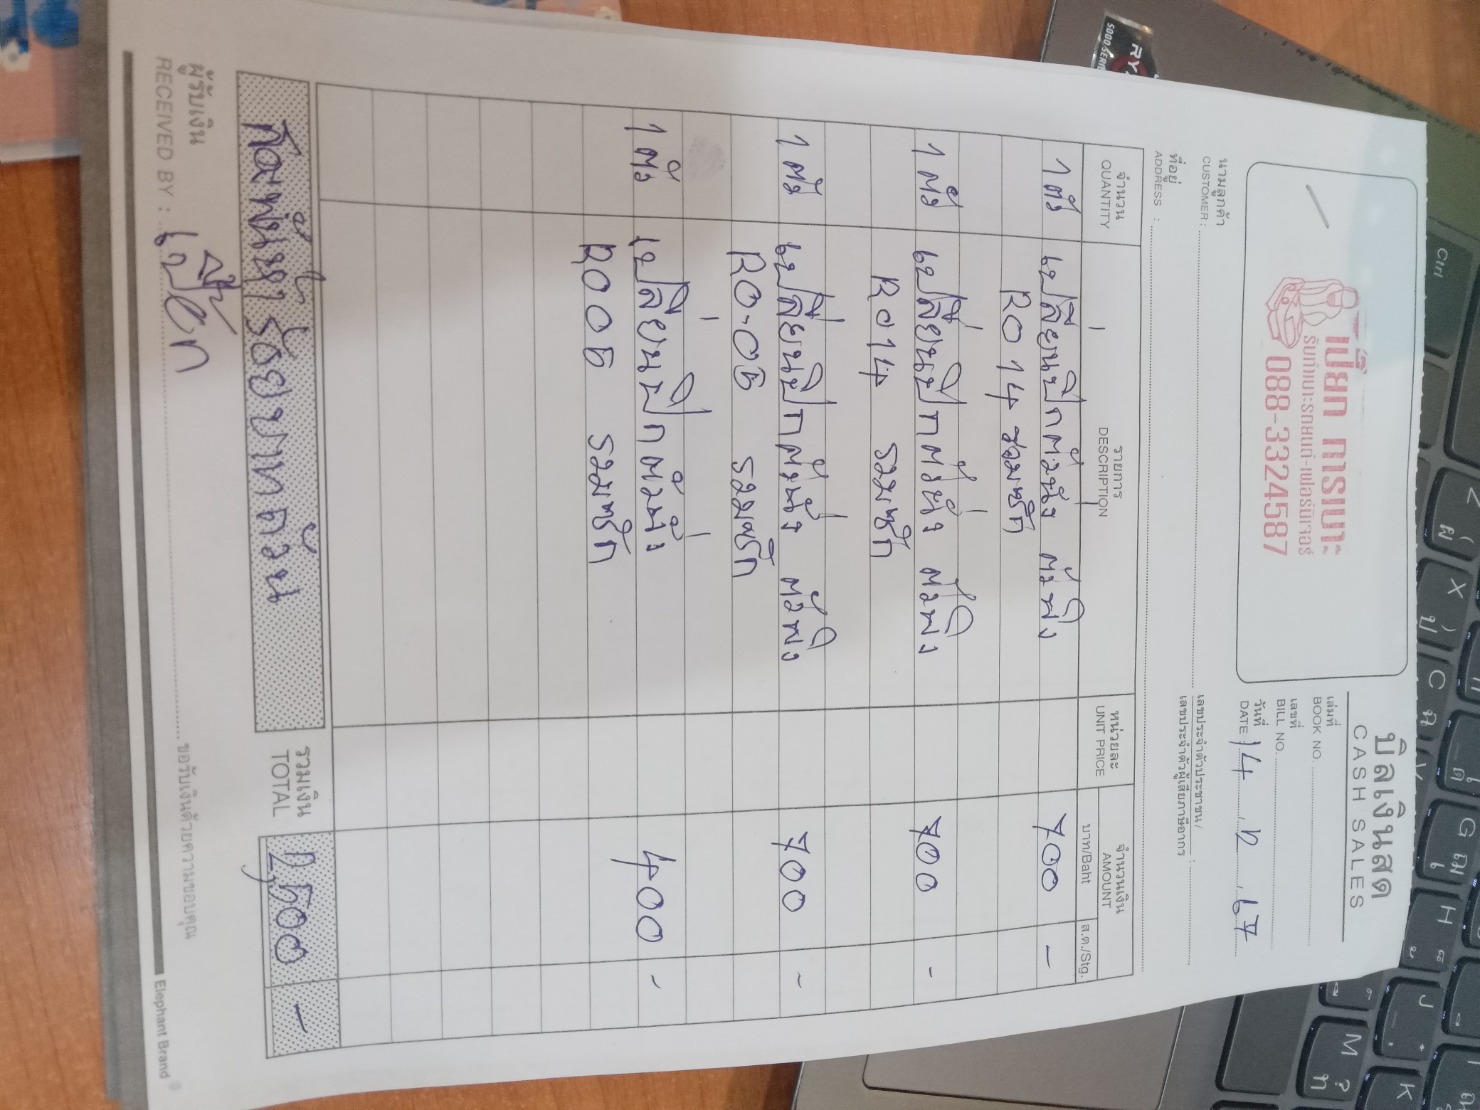 บิลเงินสด
CASH SALES
เปี๊ยก การเบาะ
รับทำเบาะรถยนต์-เฟอร์นิเจอร์
088-3324587
เล่มที่
BOOK NO.
เลขที่
BILL NO.
วันที่ 14 . 12 . 67
DATE
นามลูกค้า
CUSTOMER :
ที่อยู่
ADDRESS :
เลขประจำตัวประชาชน/
เลขประจำตัวผู้เสียภาษีอากร :
จำนวน รายการ หน่วยละ จำนวนเงิน
QUANTITY DESCRIPTION UNIT PRICE AMOUNT
บาท/Baht ส.ต./Stg.
1 ตัว เปลี่ยนปีกตัวนั่ง ตัวพิง 700 -
R014 รวมซัก
1 ตัว เปลี่ยนปีกตัวนั่ง ตัวพิง 700 -
R014 รวมซัก
1 ตัว เปลี่ยนปีกตัวนั่ง ตัวพิง 700 -
R0-06 รวมซัก
1 ตัว เปลี่ยนปีกตัวนั่ง 400 -
R006 รวมซัก
สองพันห้าร้อยบาทถ้วน รวมเงิน 2,500 -
TOTAL
ผู้รับเงิน เปี๊ยก
RECEIVED BY :
ขอรับเงินด้วยความขอบคุณ
Elephant Brand
RYZ
5000 SERI
Ctrl
Z
X
C
G
H
M
K